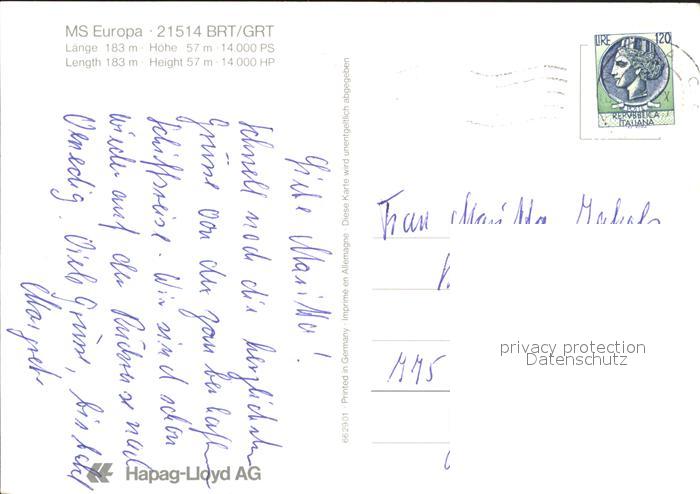 MS Europa · 21514 BRT/GRT
Länge 183 m · Höhe 57 m · 14.000 PS
Length 183 m · Height 57 m · 14.000 HP
LIRE 120
POSTE
REPVBBLICA
ITALIANA
Liebe Maritta!
Schnell noch die herzlichsten
Grüsse von der zauberhaften
Schiffsreise. Wir sind schon
wieder auf der Rückreise nach
Venedig. Viele Grüsse, bis bald
Margret
662901 · Printed in Germany · Imprimé en Allemagne · Diese Karte wird unentgeltlich abgegeben
Frau Maritta
775
privacy protection
Datenschutz
Hapag-Lloyd AG